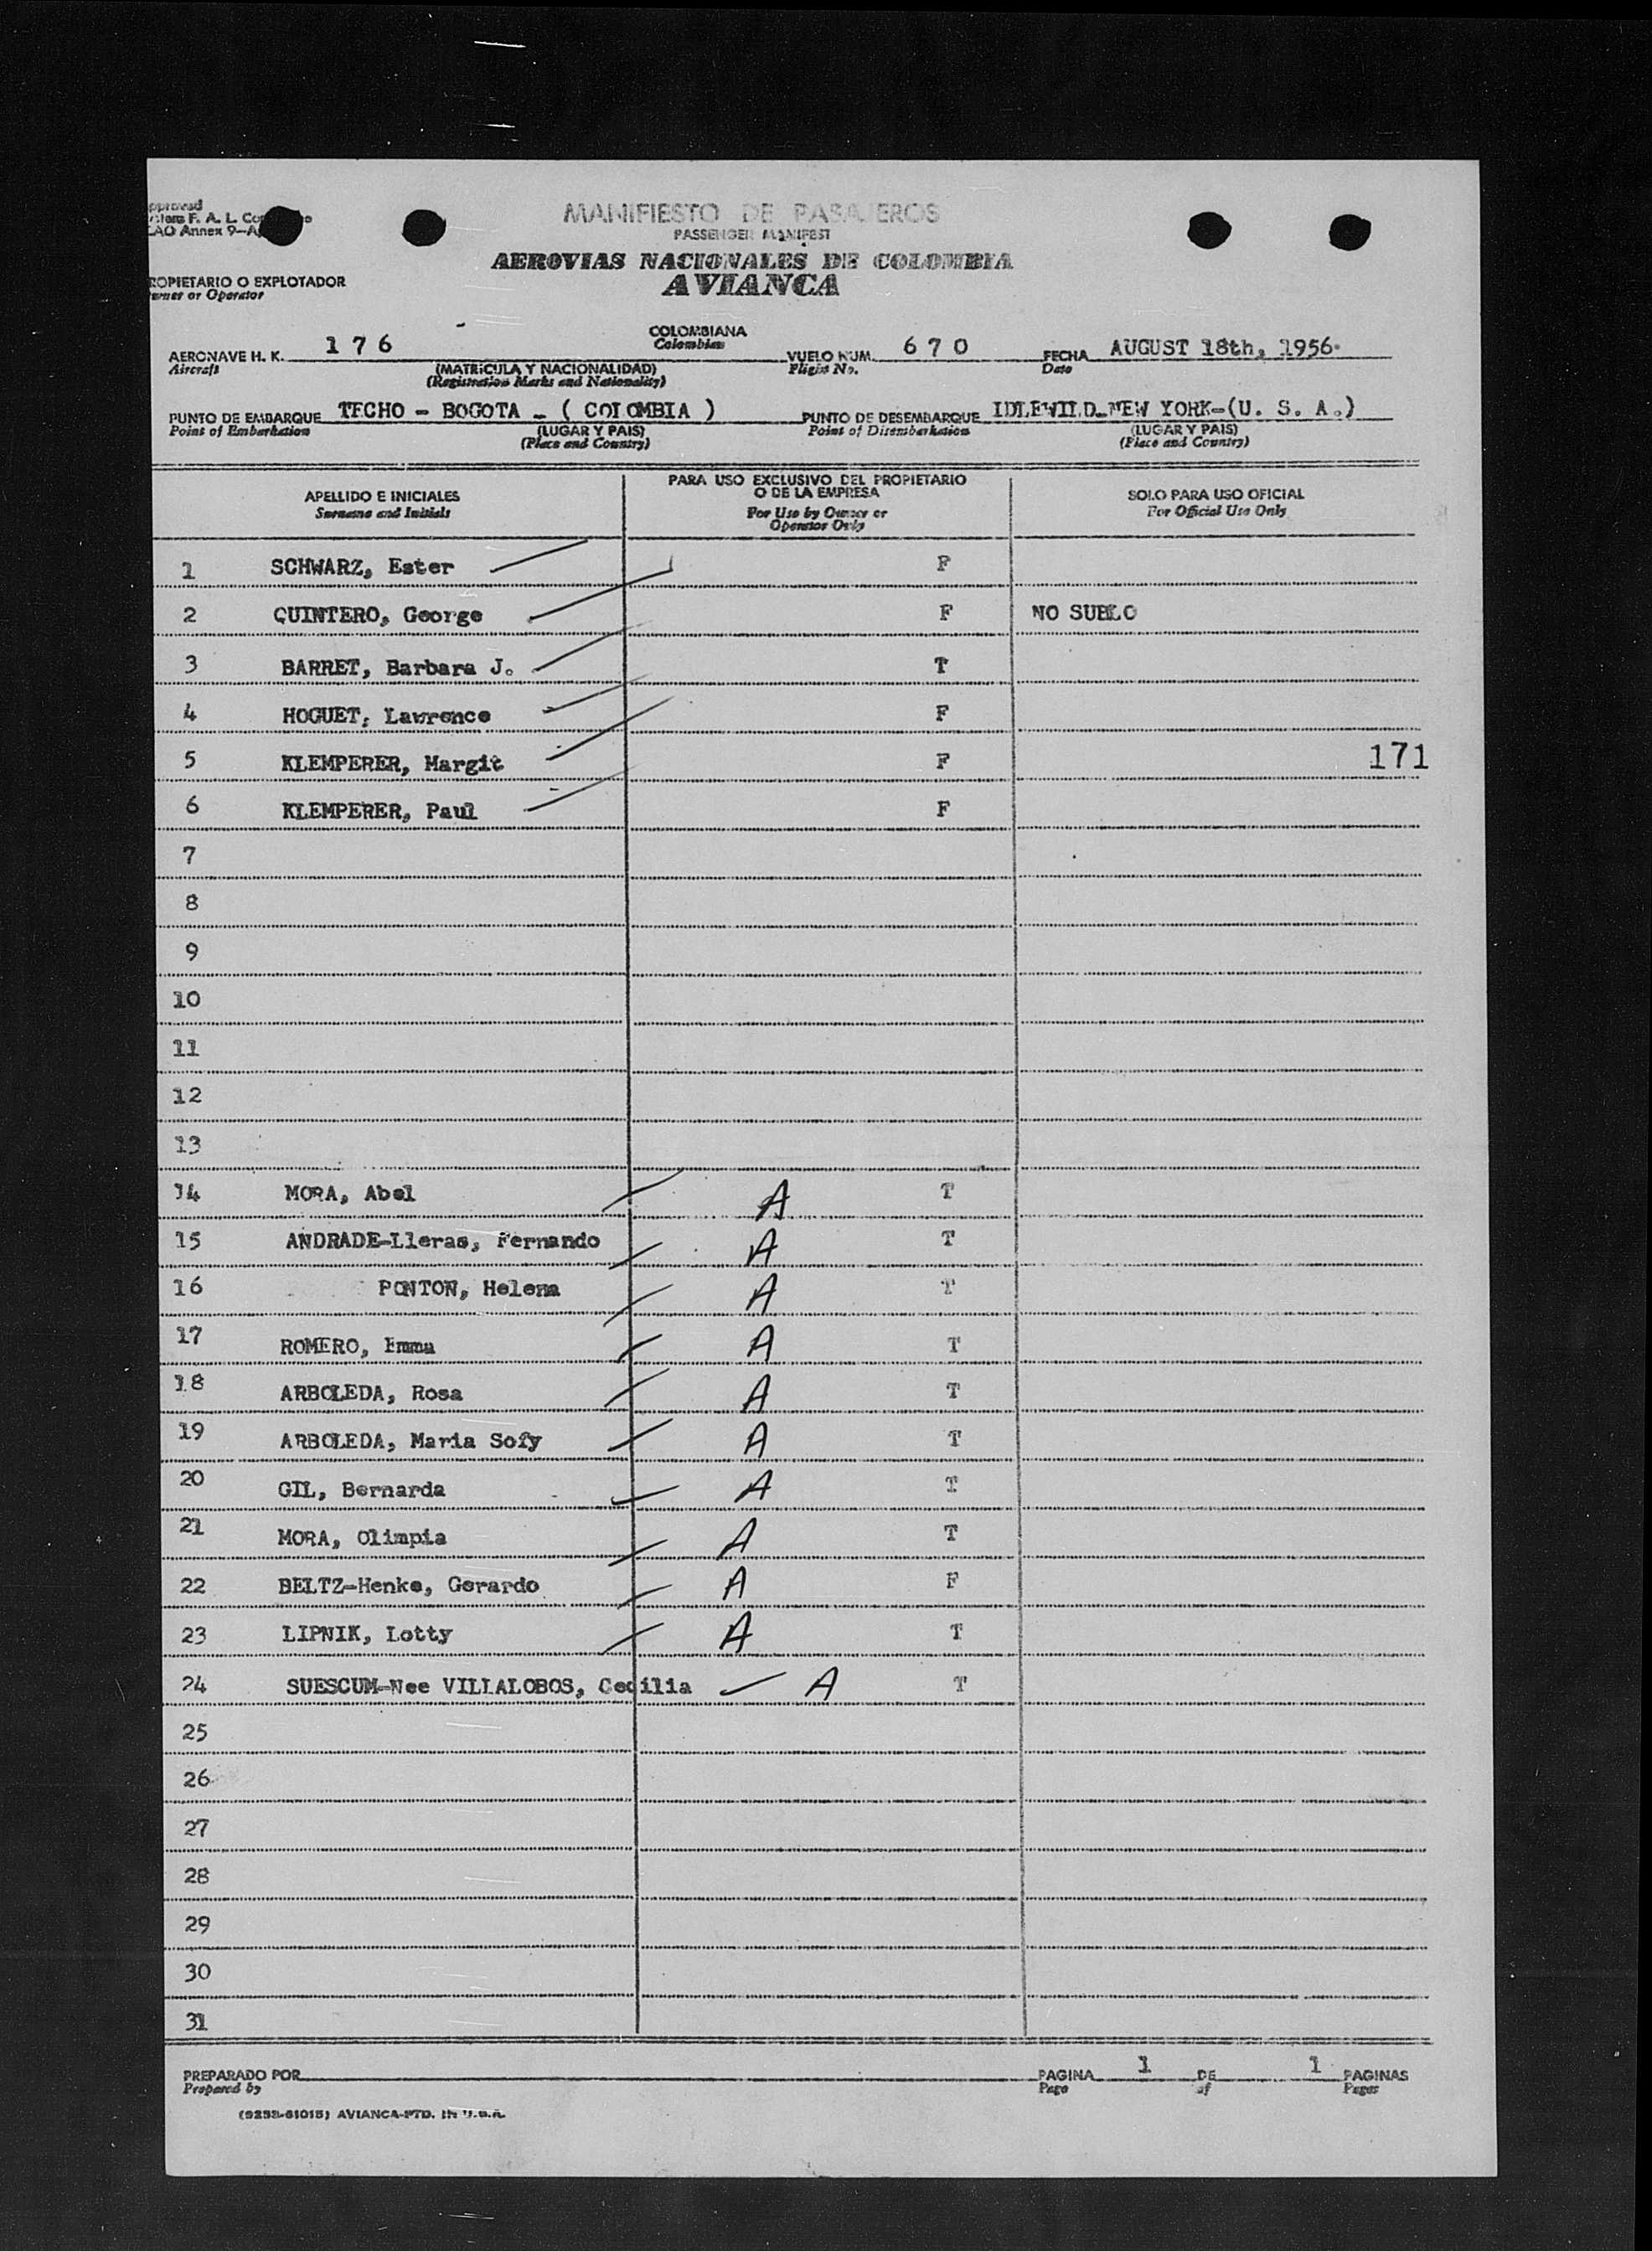 MANIFIESTO DE PASAJEROS
PASSENGER MANIFEST
AEROVIAS NACIONALES DE COLOMBIA
AVIANCA
F. A. L.
Annex 9-
ROPIETARIO O EXPLOTADOR
wner or Operator
AERONAVE H. K. 1 7 6 COLOMBIANA VUELO NUM. 6 7 0 FECHA AUGUST 18th, 1956
Aircraft (MATRICULA Y NACIONALIDAD) Colombian Flight No. Date
(Registration Marks and Nationality)
PUNTO DE EMBARQUE TECHO - BOGOTA - ( COLOMBIA ) PUNTO DE DESEMBARQUE IDLEWILD-NEW YORK-(U. S. A.)
Point of Embarkation (LUGAR Y PAIS) Point of Disembarkation (LUGAR Y PAIS)
(Place and Country) (Place and Country)
APELLIDO E INICIALES PARA USO EXCLUSIVO DEL PROPIETARIO O DE LA EMPRESA SOLO PARA USO OFICIAL
Surname and Initials For Use by Owner or Operator Only For Official Use Only
1 SCHWARZ, Ester F
2 QUINTERO, George F NO SUBIO
3 BARRET, Barbara J. T
4 HOGUET, Lawrence F
5 KLEMPERER, Margit F 171
6 KLEMPERER, Paul F
7
8
9
10
11
12
13
14 MORA, Abel A T
15 ANDRADE-Lleras, Fernando A T
16 PONTON, Helena A T
17 ROMERO, Emma A T
18 ARBOLEDA, Rosa A T
19 ARBOLEDA, Maria Sofy A T
20 GIL, Bernarda A T
21 MORA, Olimpia A T
22 BELTZ-Henke, Gerardo A F
23 LIPNIK, Lotty A T
24 SUESCUM-Nee VILLALOBOS, Cecilia A T
25
26
27
28
29
30
31
PREPARADO POR PAGINA 1 DE 1 PAGINAS
Prepared by Page of Pages
(9253-61015) AVIANCA-PTD. IN U.S.A.